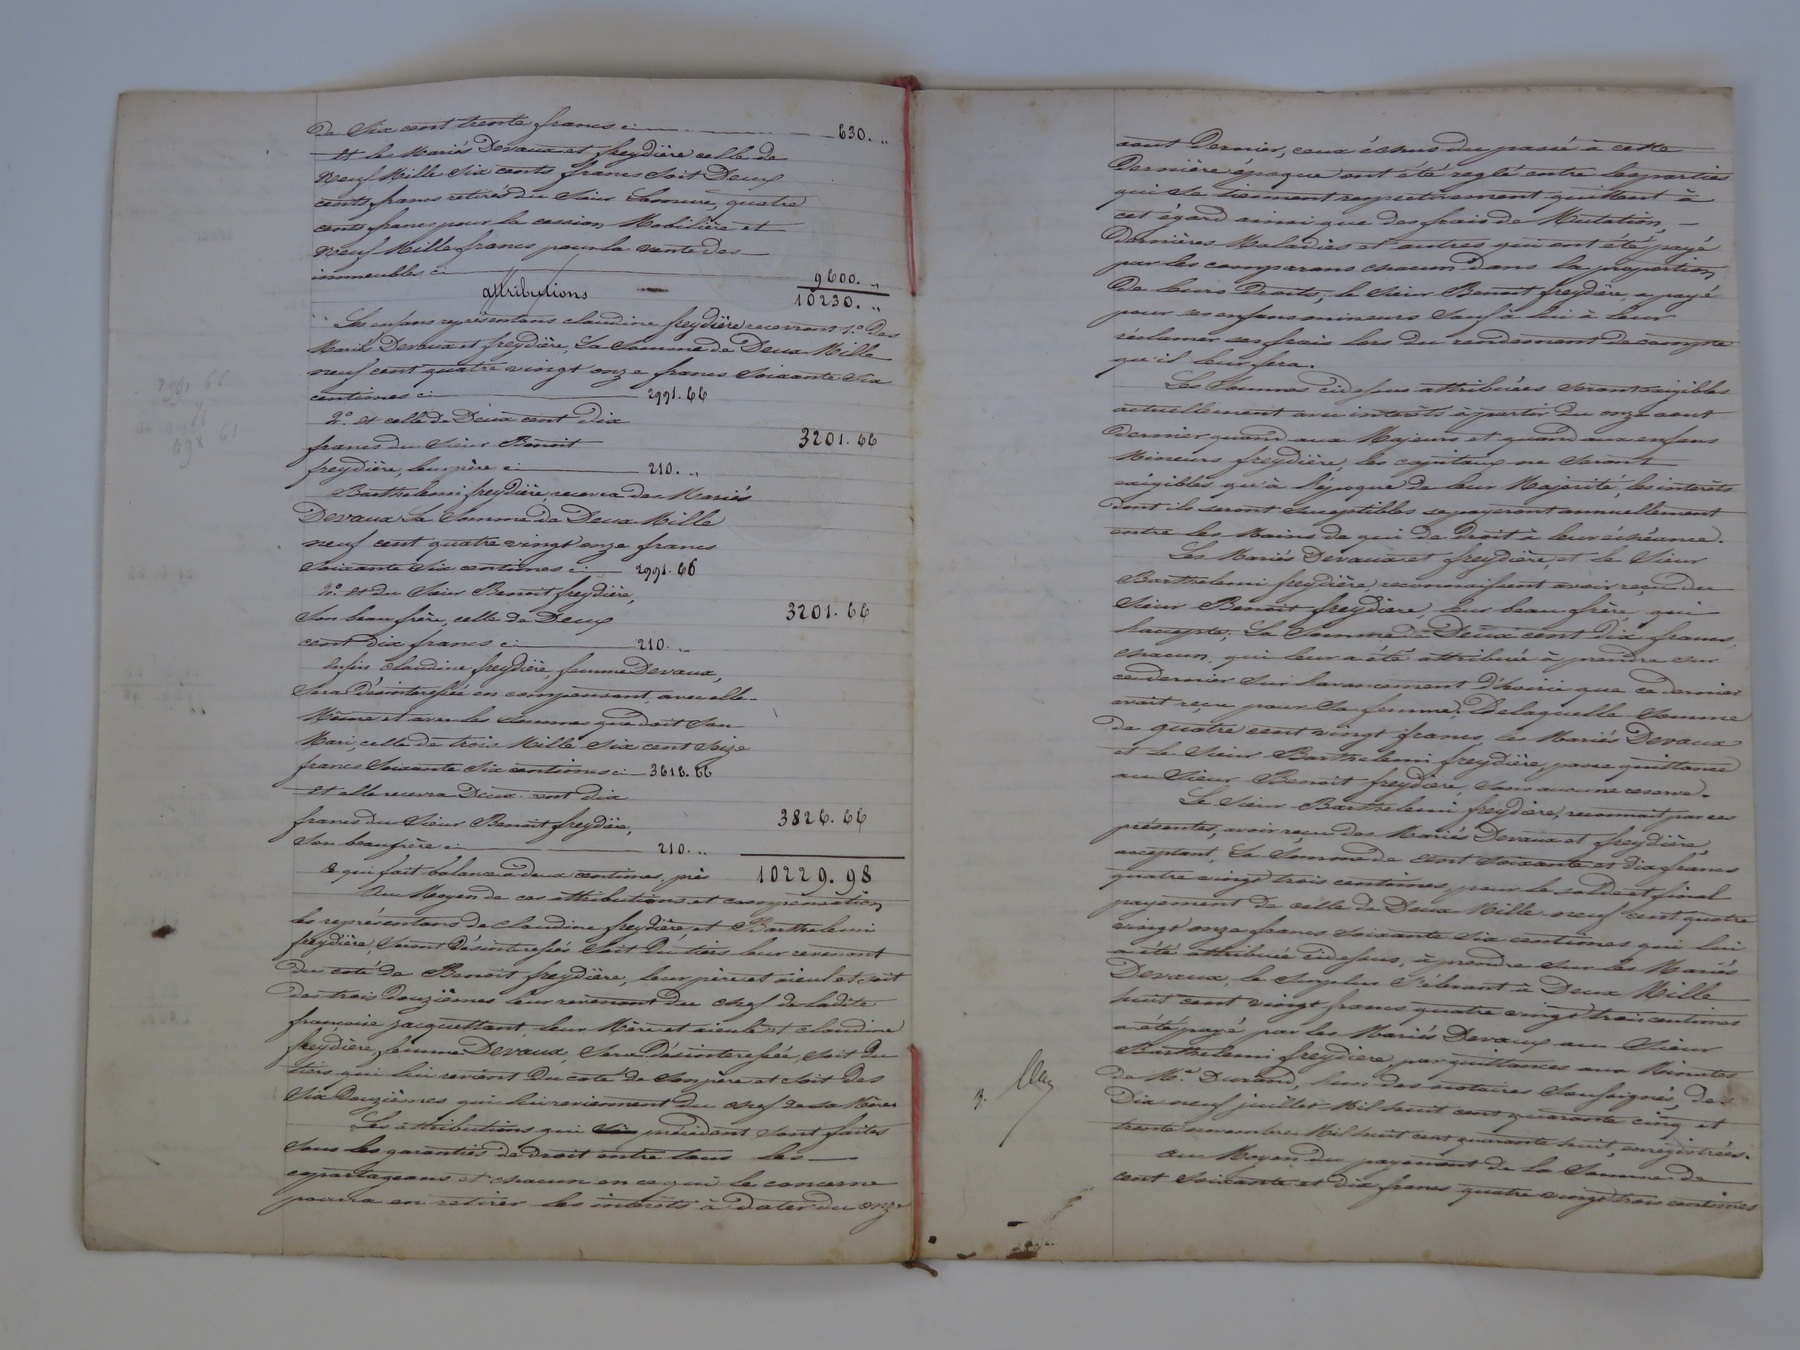 de Six cent trente francs ci 630. "
Et les Mariés Devaux et freydière celle de
neuf Mille Six cents francs soit Deux
cents francs retirés du Sieur Lamure, quatre
cents francs pour la cession Mobilière et
neuf Mille francs pour la vente des
immeubles ci 9600. "
attributions 10230. "
Les enfans représentans claudine freydière recevront 1.º des
Mariés Devaux et freydière, La Somme de Deux Mille
neuf cent quatre vingt onze francs Soixante Six
centimes ci 2991. 66
2.º et celle de Deux cent dix
francs du Sieur Benoit 3201. 66
freydière, leur père ci 210. "
Barthelemi freydière, recevra des Mariés
Devaux La Somme de Deux Mille
neuf cent quatre vingt onze francs
Soixante Six centimes ci 2991. 66
2.º et du Sieur Benoit freydière,
Son beau frère, celle de Deux 3201. 66
cent Dix francs ci 210. "
enfin Claudine freydière, femme Devaux,
Sera Désinteressée en compensant avec elle
Même et avec les sommes que doit Son
Mari, celle de trois Mille Six cent Seize
francs Soixante Six centimes ci 3616. 66
Et elle recevra Deux cent dix
francs du Sieur Benoit freydière, 3826. 66
Son beaufrère ci 210. "
Ce qui fait balance à deux centimes, près 10229. 98
Au Moyen de ces attributions et compensation
les représentans de Claudine freydière et Barthelemi
freydière, Seront Désinteressés Soit Du tiers leur revenant
du coté de Benoit freydière, leur père et aieul et soit
des trois Douzièmes leur revenant du chef de ladite
francoise jacquettant, leur Mère et aieule et claudine
freydière, femme Devaux, Sera Désinteressée, Soit du
tiers qui lui revient Du coté de Son père et Soit des
Six Douzièmes qui lui reviennent du chef de Sa Mère
Les attributions qui précèdent sont faites
Sous les garanties de droit entre tous les
copartageans et chacun en ce qui le concerne
pourra en retirer les intérêts à dater du onze
aout Dernier, ceux échus du passé à cette
Dernière époque ont été reglé entre les parties
qui se tiennent respectivement quittent à
cet égard ainsi que des frais de Mutation,
Dernières Maladies et autres qui ont été payé
par les comparans chacun Dans la proportion
De leurs Droits, le Sieur Benoit freydière, a payé
pour ses enfans mineurs Sauf à lui à leur
réclamer ces frais lors du rendement de compte
qu'il leur fera.
Les Sommes ci dessus attribuées Seront exigibles
actuellement avec intérêts à partir du onze aout
dernier quand aux Majeurs et quand aux enfans
Mineurs freydière, les capitaux ne Seront
exigibles qu'à l'époque de leur Majorité, les intérêts
dont ils seront Susceptibles se payeront annuellement
entre les Mains de qui de Droit à leur échéance.
Les Mariés Devaux et freydière, et le Sieur
Barthelemi freydière, reconnaissent avoir reçu du
Sieur Benoit freydière, leur beau frère, qui
l'accepte, La Somme de Deux cent dix francs,
chacun, qui leur a été attribuée à prendre sur
ce dernier sur l'avancement D'hoirie que ce dernier
avait reçu pour Sa femme, De laquelle Somme
de quatre cent vingt francs, les Mariés Devaux
et le Sieur Barthelemi freydière, passe quittance
au Sieur Benoit freydière, Sans aucune reserve.
Le Sieur Barthelemi freydière, reconnait par ces
présentes, avoir reçu des Mariés Devaux et freydière,
acceptant, La Somme de cent Soixante et dix francs
quatre vingt trois centimes, pour le solde et final
payement de celle de Deux Mille neuf cent quatre
vingt onze francs Soixante Six centimes qui lui
a été attribuée ci dessus, à prendre sur les Mariés
Devaux, le Surplus S'élevant à Deux Mille
huit cent vingt francs quatre vingt trois centimes
a été payé par les Mariés Devaux au Sieur
Barthelemi freydière par quittances aux Minutes
de M.e Durand, l'un des notaires Soussignés, des
Dix neuf juillet Mil huit cent quarante cinq et
trente novembre Mil huit cent quarante huit, enregistrées.
Au Moyen du payement de la Somme de
cent Soixante et dix francs quatre vingt trois centimes